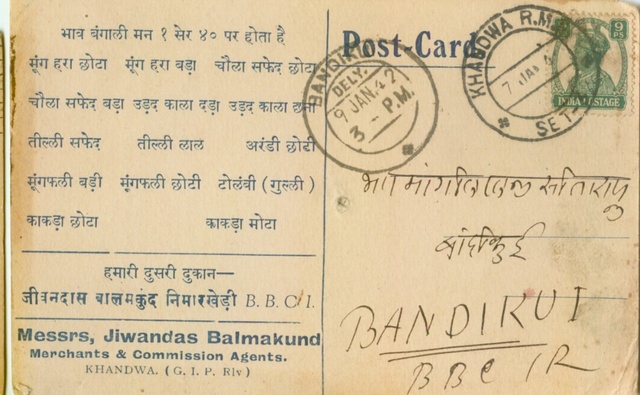 भाव बंगाली मन १ सेर ४० पर होता है
मूंग हरा छोटा मूंग हरा बड़ा चौला सफेद छोटा
चौला सफेद बड़ा उड़द काला दड़ा उड़द काला छोटा
तील्ली सफेद तील्ली लाल अरंडी छोटी
मूंगफली बड़ी मूंगफली छोटी टोलंबी (गुल्ली)
काकड़ा छोटा काकड़ा मोटा
हमारी दुसरी दुकान—
जीवनदास बालमकुंद निमारखेड़ी B. B. C I.
Messrs, Jiwandas Balmakund
Merchants & Commission Agents.
KHANDWA. (G. I. P. Rly)
Post-Card
BANDIKUI
DELY.
9 JAN. 42
3 - P.M.
KHANDWA R.M.S
7 JAN. 4
SET
9 PS
INDIA POSTAGE
बांदीकुई
BANDIKUI
BBC IR